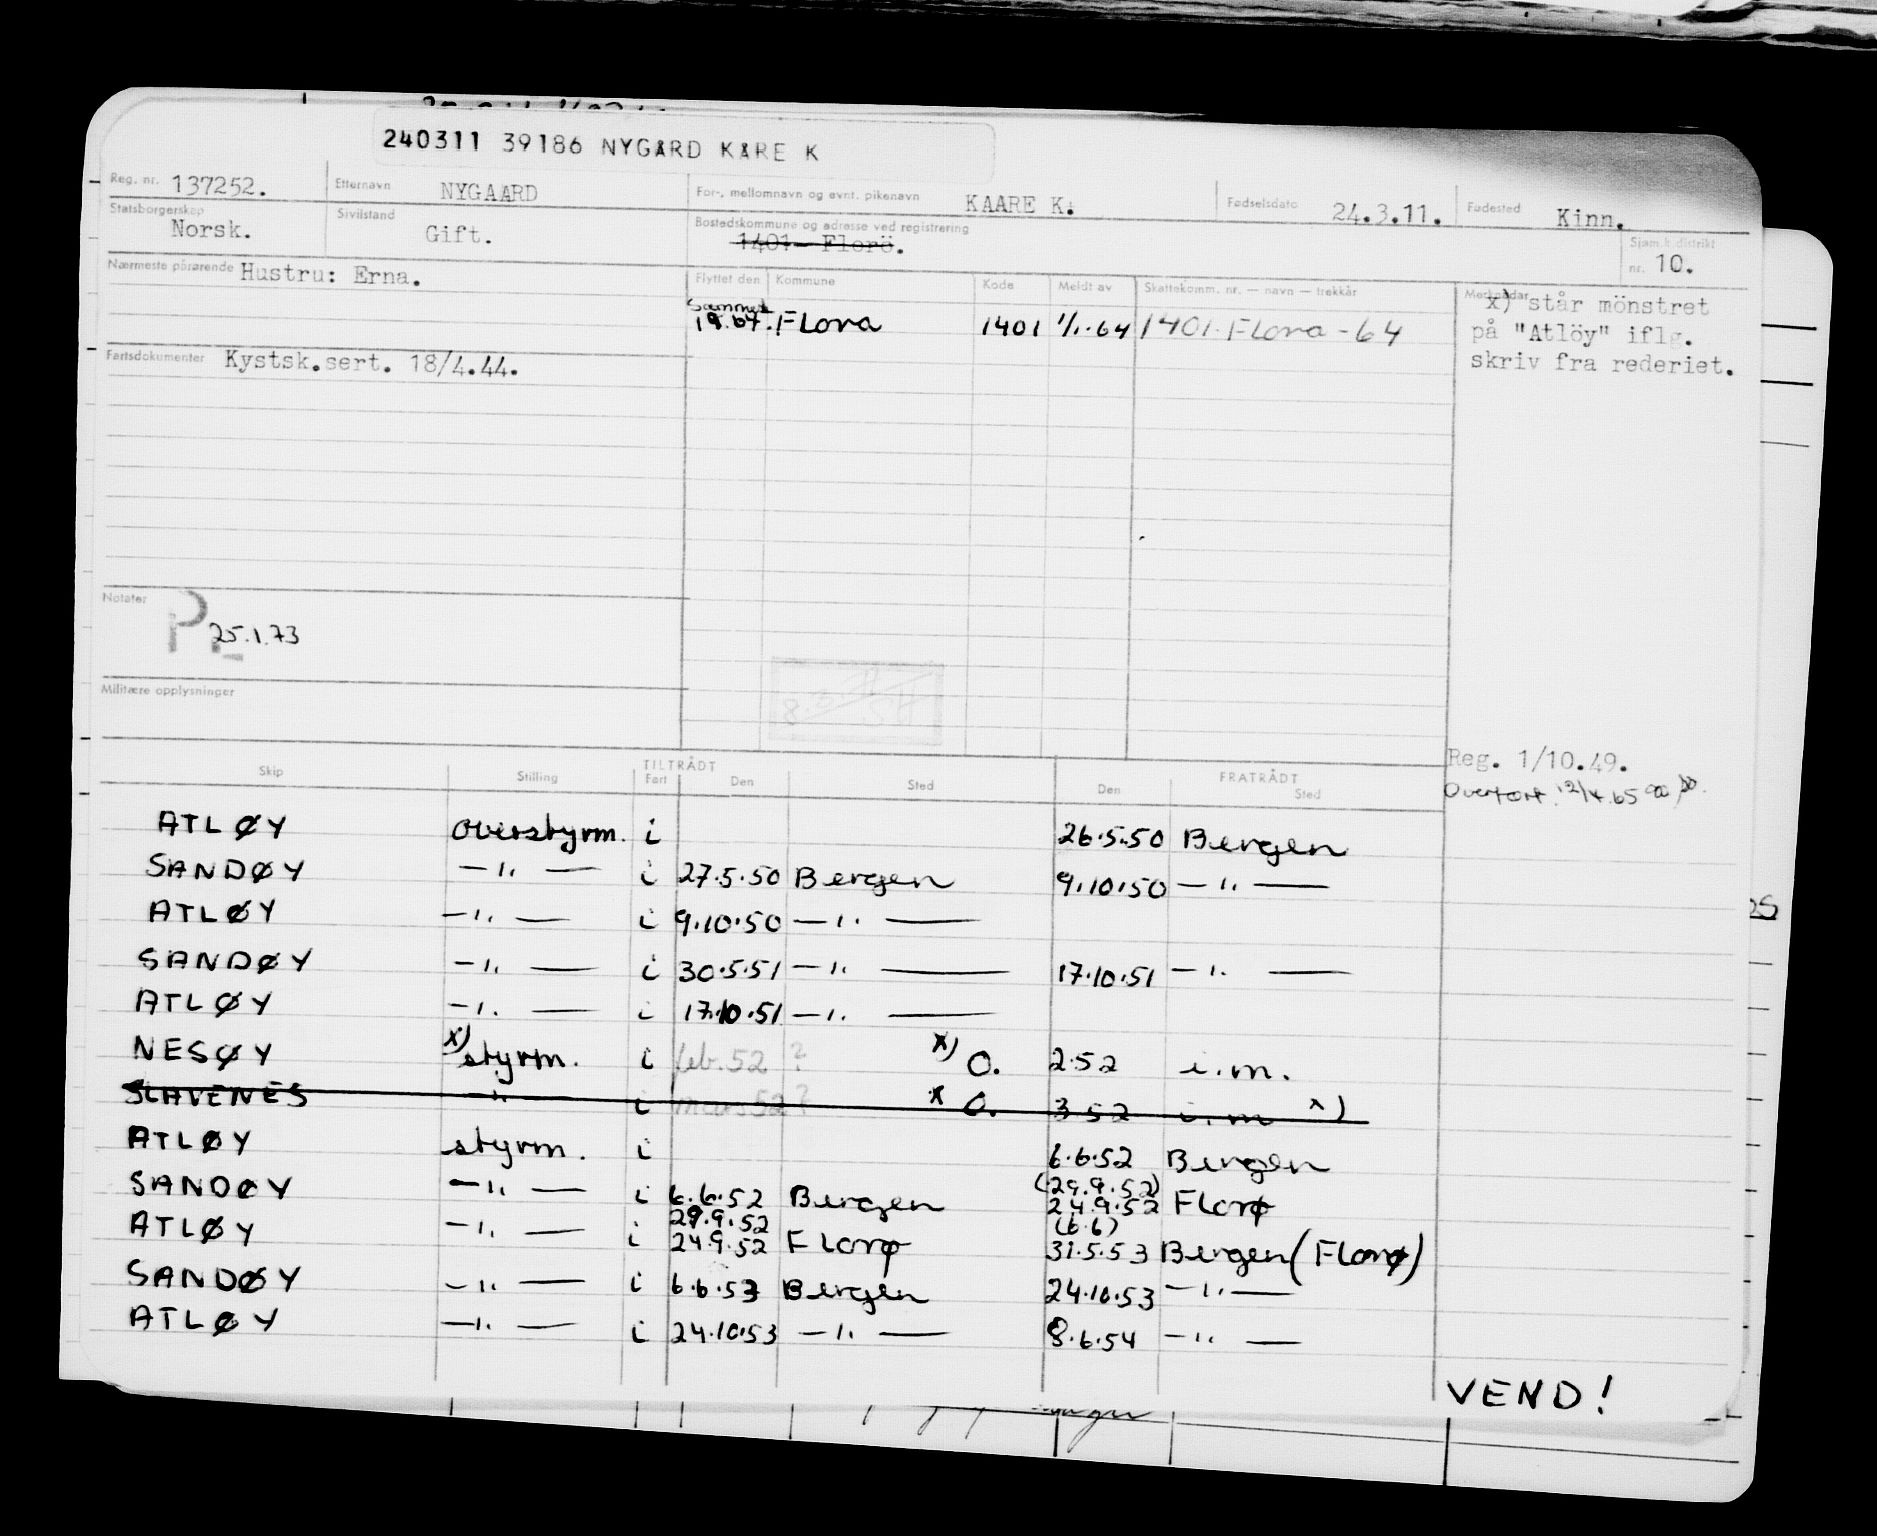 240311 39186 NYGÅRD KÅRE K
Reg. nr. 137252. Etternavn NYGAARD For-, mellomnavn og evnt. pikenavn KAARE K. Fødselsdato 24.3.11. Fødested Kinn.
Statsborgerskap Norsk. Sivilstand Gift. Bostedskommune og adresse ved registrering 1401 - Florö. Sjøm.k.distrikt nr. 10.
Nærmeste pårørende Hustru: Erna.
Flyttet den Kommune Kode Meldt av Skattekomm. nr. — navn — trekkår Merknader
Sammen
19.64. Flora 1401 1/1.64 1401 Flora - 64
x) står mönstret
på "Atlöy" iflg.
skriv fra rederiet.
Fartsdokumenter Kystsk.sert. 18/4.44.
Notater
P 25.1.73
Militære opplysninger
Reg. 1/10.49.
Overført. 12/4.65
TILTRÅDT FRATRÅDT
Skip Stilling Fart Den Sted Den Sted
ATLØY overstyrm. i 26.5.50 Bergen
SANDØY —"— i 27.5.50 Bergen 9.10.50 —"—
ATLØY —"— i 9.10.50 —"—
SANDØY —"— i 30.5.51 —"— 17.10.51 —"—
ATLØY —"— i 17.10.51 —"—
NESØY x) styrm. i feb. 52 ? x) O. 2.52 i.m.
SLAVENES —"— i mars 52 ? x O. 3 52 i.m x)
ATLØY styrm. i 6.6.52 Bergen
SANDØY —"— i 6.6.52 Bergen (29.9.52) 24.9.52 Florø
ATLØY —"— i 29.9.52 24.9.52 Florø (6.6) 31.5.53 Bergen (Florø)
SANDØY —"— i 6.6.53 Bergen 24.10.53 —"—
ATLØY —"— i 24.10.53 —"— 8.6.54 —"—
VEND!